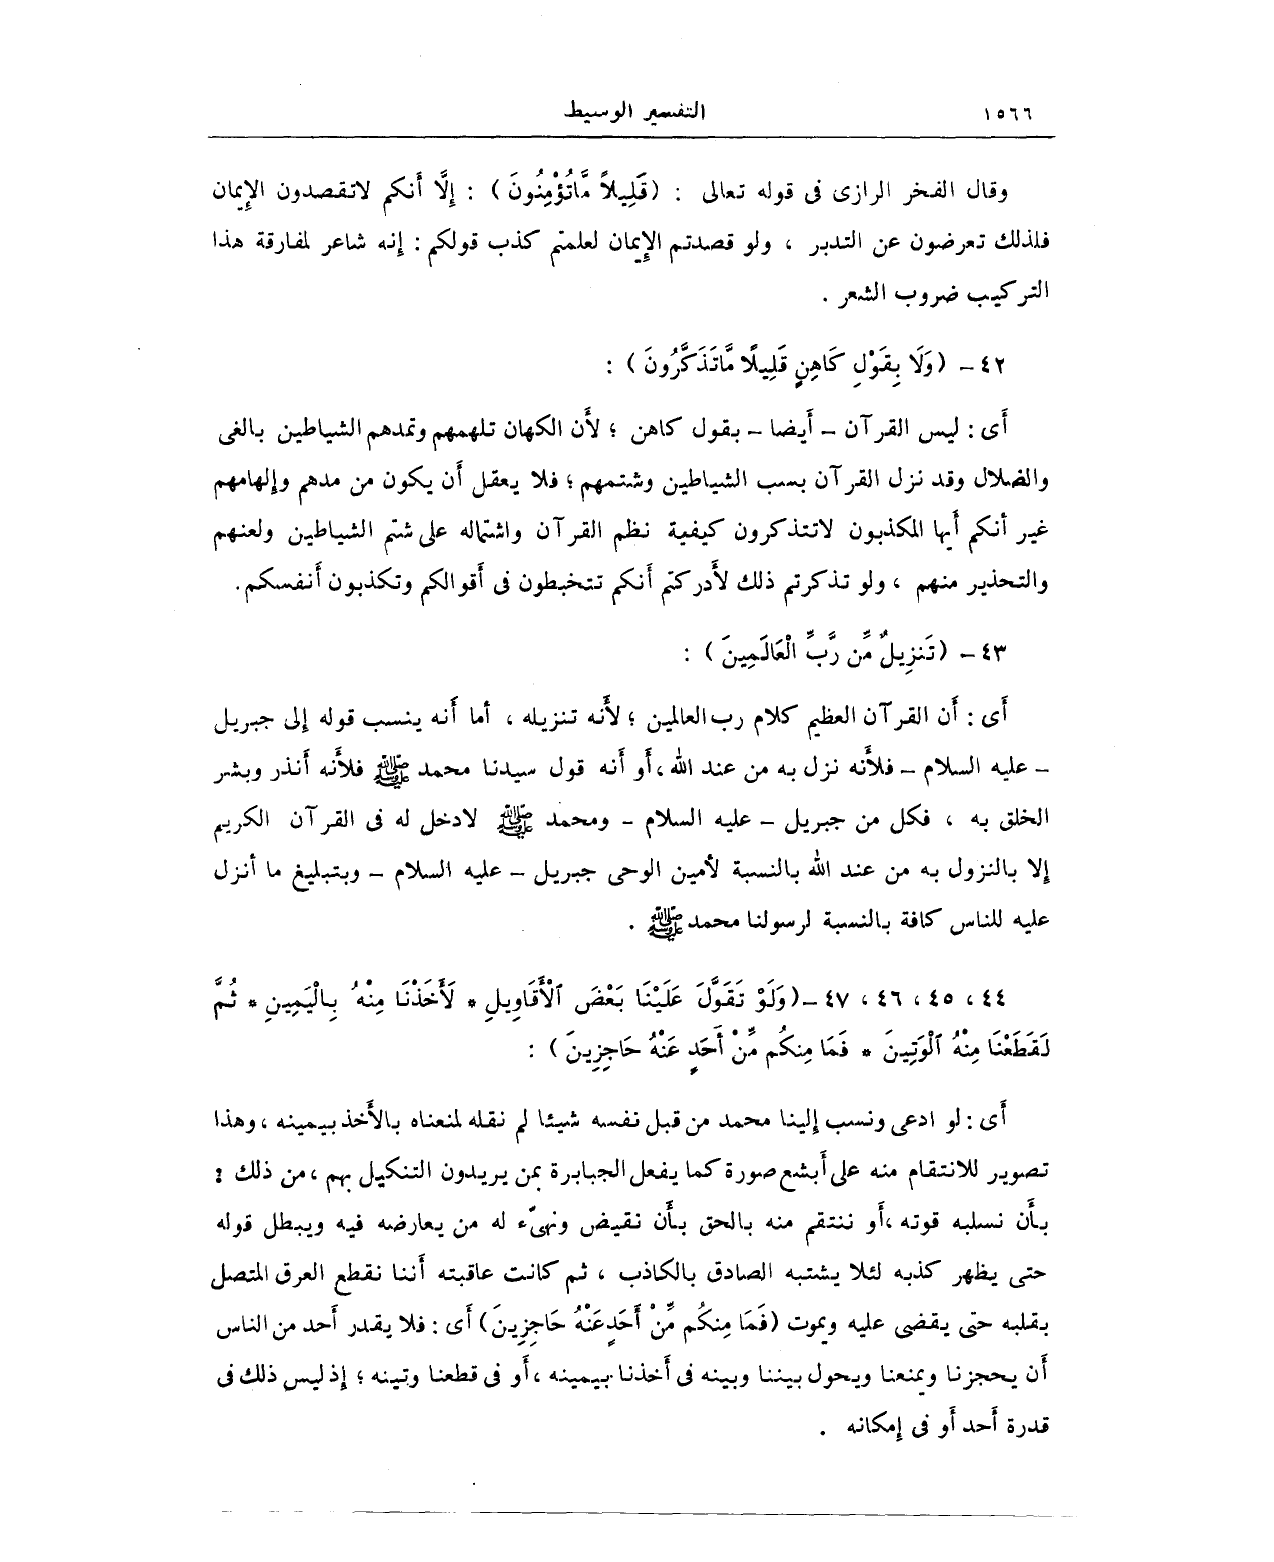 ١٥٦٦
التفسير الوسيط
وقال الفخر الرازى فى قوله تعالى : (قَلِيلاً مَّاتُؤْمِنُونَ) : إِلَّا أَنكم لاتقصدون الإِيمان
فلذلك تعرضون عن التدبر ، ولو قصدتم الإِيمان لعلمتم كذب قولكم : إنه شاعر لمفارقة هذا
التركيب ضروب الشعر .
٤٢ - (وَلَا بِقَوْلِ كَاهِنٍ قَلِيلًا مَّاتَذَكَّرُونَ) :
أَى : ليس القرآن - أَيضا - بقول كاهن ؛ لأَن الكهان تلهمهم وتمدهم الشياطين بالغى
والضلال وقد نزل القرآن بسب الشياطين وشتمهم ؛ فلا يعقل أَن يكون من مدهم وإلهامهم
غير أنكم أَيها المكذبون لاتتذكرون كيفية نظم القرآن واشتماله على شتم الشياطين ولعنهم
والتحذير منهم ، ولو تذكرتم ذلك لأَدركتم أَنكم تتخبطون فى أَقوالكم وتكذبون أَنفسكم .
٤٣ - (تَنزِيلٌ مِّن رَّبِّ الْعَالَمِينَ) :
أَى : أَن القرآن العظيم كلام رب العالمين ؛ لأَنه تنزيله ، أما أَنه ينسب قوله إلى جبريل
- عليه السلام - فلأَنه نزل به من عند الله ،أَو أَنه قول سيدنا محمد ﷺ فلأَنه أَنذر وبشر
الخلق به ، فكل من جبريل - عليه السلام - ومحمد ﷺ لادخل له فى القرآن الكريم
إلا بالنزول به من عند الله بالنسبة لأَمين الوحى جبريل - عليه السلام - وبتبليغ ما أَنزل
عليه للناس كافة بالنسبة لرسولنا محمد ﷺ .
٤٤ ، ٤٥ ، ٤٦ ، ٤٧ -(وَلَوْ تَقَوَّلَ عَلَيْنَا بَعْضَ ٱلْأَقَاوِيلِ * لَأَخَذْنَا مِنْهُ بِالْيَمِينِ * ثُمَّ
لَقَطَعْنَا مِنْهُ ٱلْوَتِينَ * فَمَا مِنكُم مِّنْ أَحَدٍ عَنْهُ حَاجِزِينَ) :
أَى : لو ادعى ونسب إلينا محمد من قبل نفسه شيئا لم نقله لمنعناه بالأَخذ بيمينه ، وهذا
تصوير للانتقام منه على أَبشع صورة كما يفعل الجبابرة بمن يريدون التنكيل بهم ،من ذلك :
بأَن نسلبه قوته ،أَو ننتقم منه بالحق بأَن نقيض ونهيّء له من يعارضه فيه ويبطل قوله
حتى يظهر كذبه لئلا يشتبه الصادق بالكاذب ، ثم كانت عاقبته أَننا نقطع العرق المتصل
بقلبه حتى يقضى عليه ويموت (فَمَا مِنكُم مِّنْ أَحَدٍعَنْهُ حَاجِزِينَ) أَى : فلا يقدر أحد من الناس
أَن يحجزنا ويمنعنا ويحول بيننا وبينه فى أَخذنا بيمينه ،أَو فى قطعنا وتينه ؛ إذ ليس ذلك فى
قدرة أَحد أَو فى إمكانه .